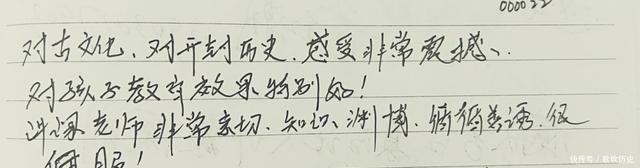 000022
对古文化、对开封历史、感受非常震撼、
对孩子教育效果特别好!
讲课老师非常亲切、知识渊博、循循善诱、很
佩服!
快传号/歌坎历史